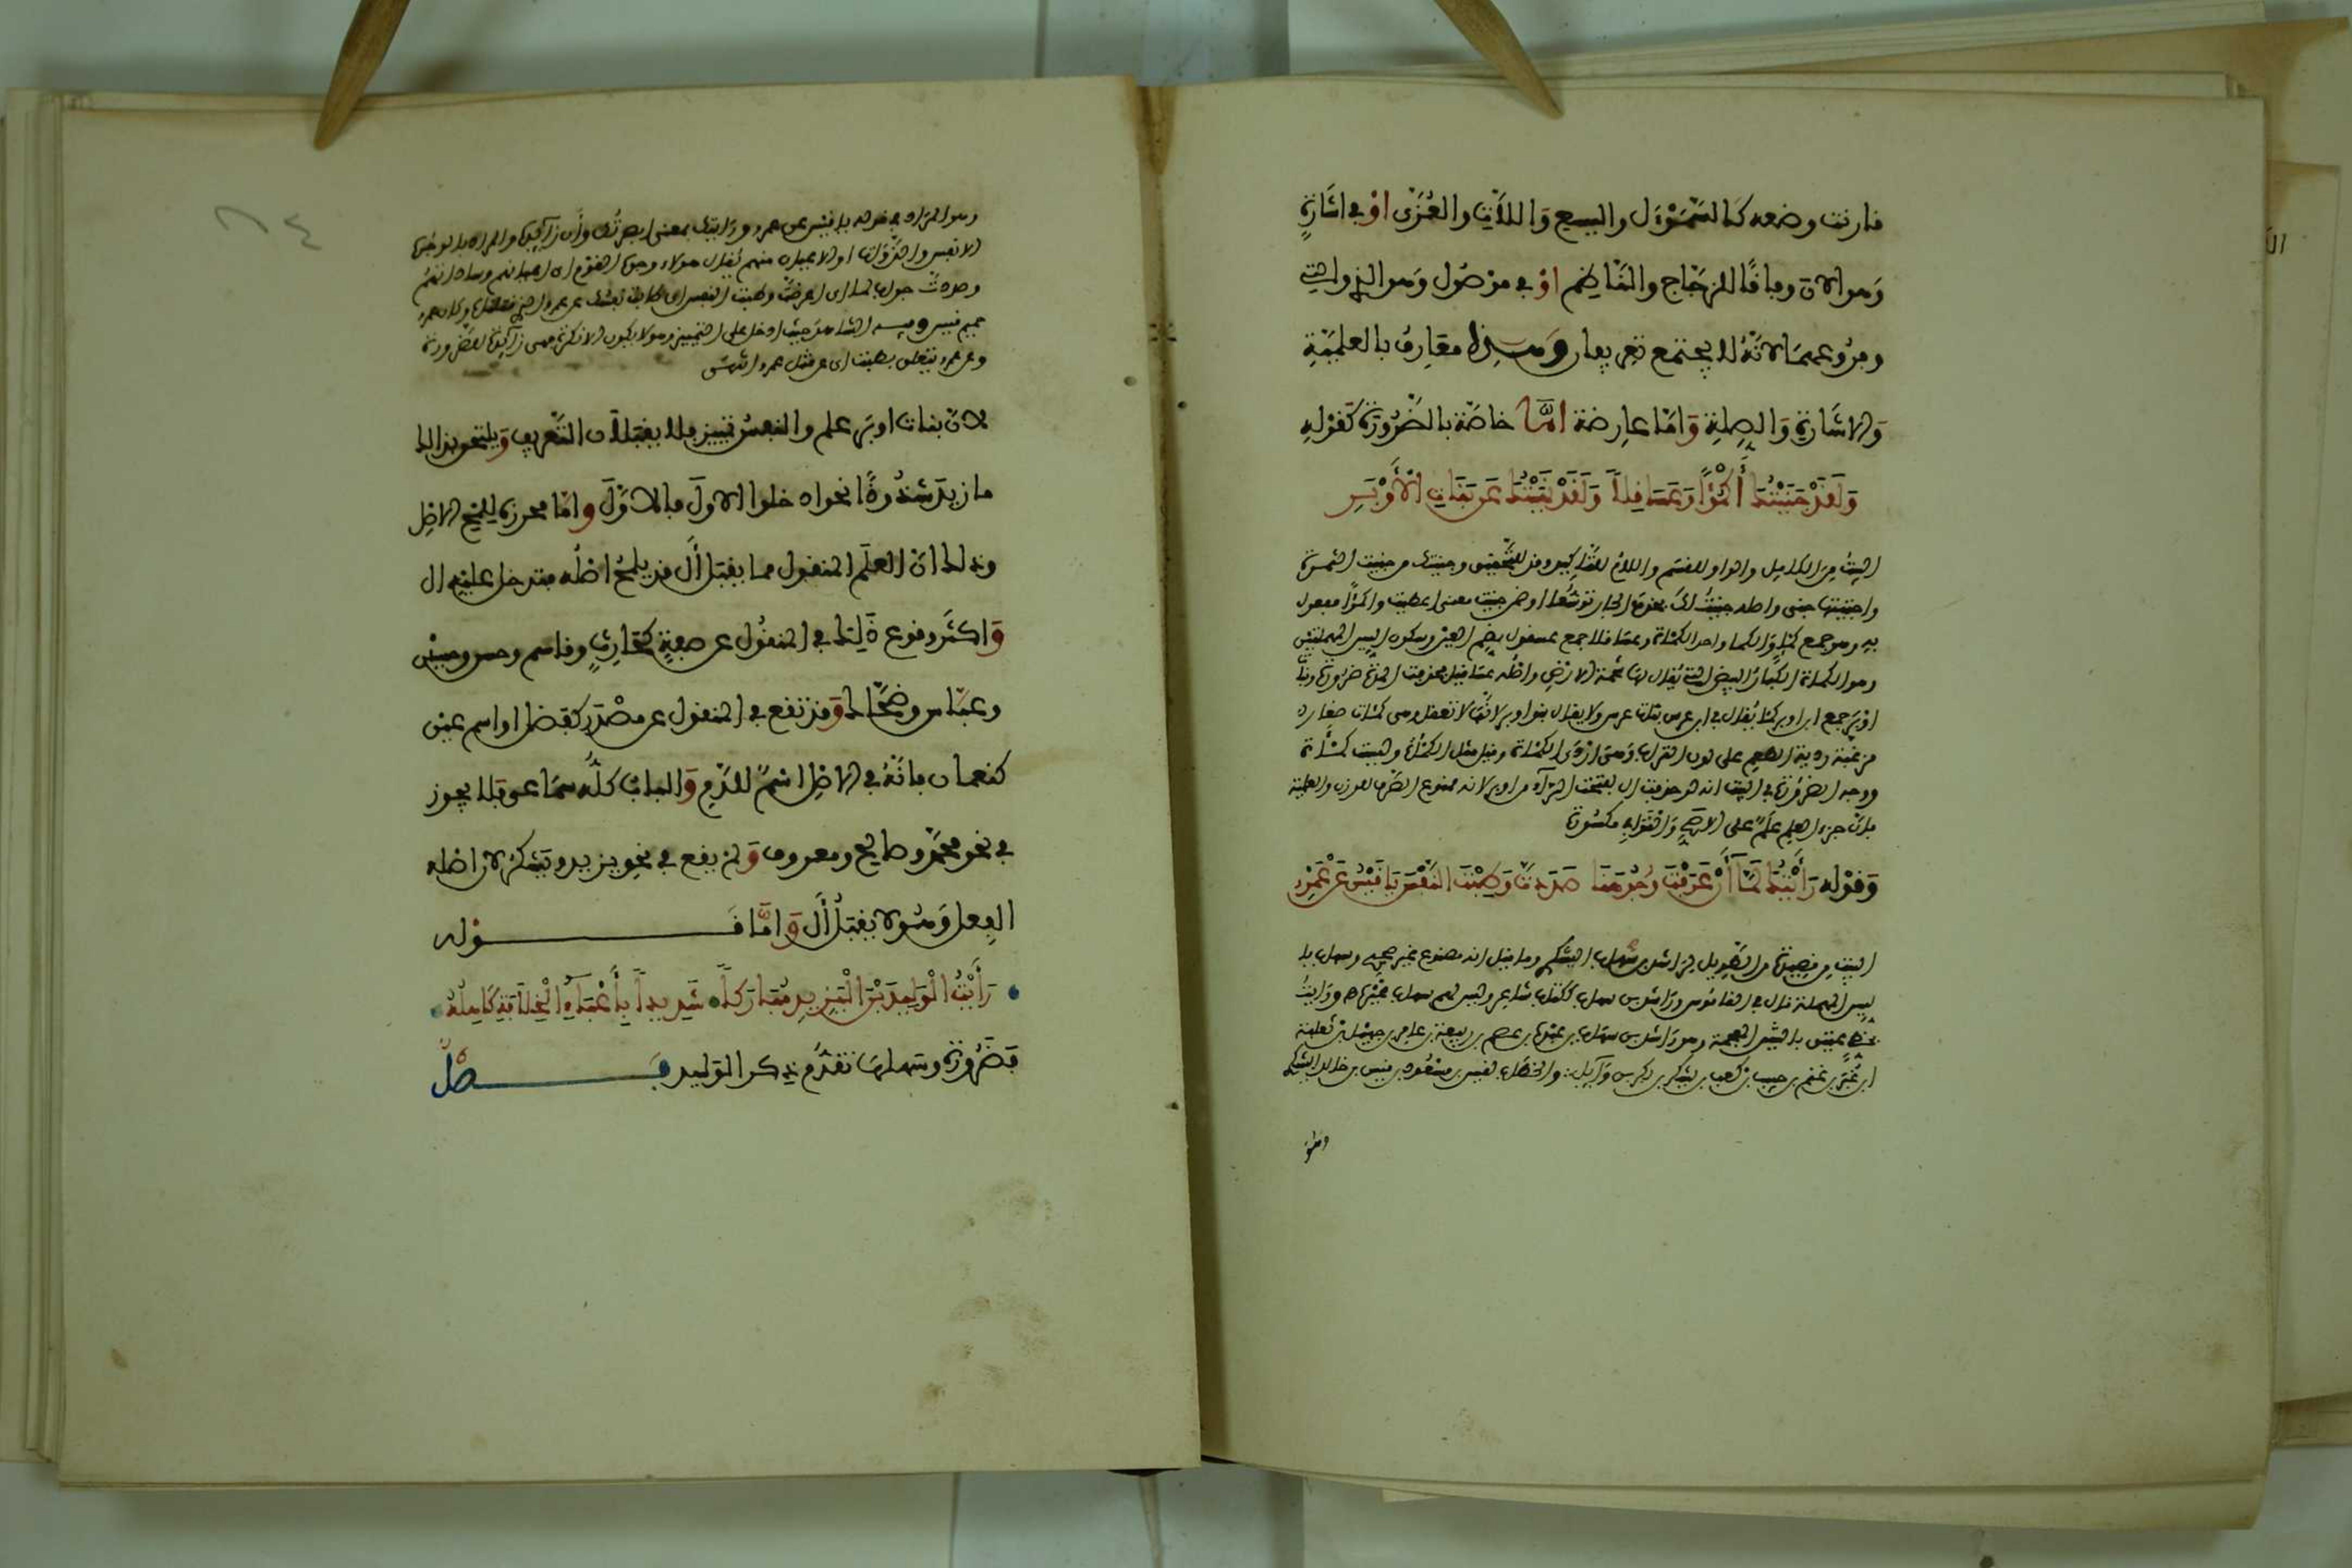 قارنت وضعه كالسَّمَوْءَل واليسع وَاللَّات والعُزَّى اوْ في اشَارَةٍ
وَهو الآن وفاقًا للزجّاج والنّاظِم اوْ في موْصُول وَهو الذي والتي
وفروعهما لانّهُ لا يجتمع تعريفان وَهذه معَارِفُ بالعلمِيّةِ
وَالاشَارَةِ وَالصِلةِ وَامَّا عارِضة امّا خاصّة بالضّرُورَة كَقوْلهِ
وَلَقَدْ جَنَيْتُكَ أَكْمُؤًا وَعَسَاقِلاً وَلَقَدْ نَهَيْتُكَ عَن بَنَاتِ الأَوْبَرِ
البيتُ مِنَ الكامِل والواو للقسَم واللامُ للتّاكِيد وقد للتّحقِيق وجنيتك من جنيت الثمرة
واجتنيتها بمعنى واصله جنيتُ لكَ فحذف الجار توسُّعا او ضمن جنيت معنى اعطيت واكمؤًا مفعول
بهِ وهو جمع كمْءٍ والكمأ واحد الكمْأة وعسَاقلا جمع عسقول بضم العين وسكون السين المهملتين
وهو الكمأة الكبارُ البيض التي يُقال لها شحمة الارض واصْله عسَاقيل فحذفت المدّة ضرُورَة وبنات
اوْبَر جمع ابن اوبر كما يُقال في ابن عرس بنات عرس ولا يقال بنو اوبر لانّها لا تعقل وهي كمْات صغار
مزغبة رديئة الطعم على لون التراب وَهي اردَى الكمْأة وقيل مثل الكمْأة وليست كمْأة
ووجه الضرُورَة في البيت انه
بانّ جزء العلم علَمٌ على الاصَح وَالقوافِي مكسُورة
وَقوْله رَأَيْتُكَ لَمَّا أَنْ عَرَفْتَ وُجُوهَنَا صَدَدْتَ وَطِبْتَ النَّفْسَ يَا قَيْسُ عَنْ عَمْرِو
البيت من قصِيدة من الطّوِيل لرَاشد بن شهاب اليشكري وما قيل انه مصنوع غير صحيح وشهاب با
لسِين المهملة قال في القامُوس ورَاشد بن سهاب ككتاب شاعِر وليس لهم سهاب غيْره ورَايتُ
بالشّين المعجمة وهو رَاشد بن سهاب بن عبْدة بن عصم بن ربيعة بن عامر بن جهبل بن ثعلبة
ابن غبَر بن غنم بن حبيب بن كعب بن يشكر بن بكر بن وَائل والخطَاب لقيس بن مسْعُود بن قيس بن خالد اليشكري
وهو المراد في قوله يا قيس عن عمرو ورَايتك بمعنى ابصرْتُك وأن زَائِدة والمراد بالوجُوه
الانفس والذّوَات او الاعيان منهم يُقال هؤلاء وجوه القوْم اي اعيانهم وساداتهُمُ
وصددت جواب لما اى اعرضتَ وطبت النفس اى طابت نفسُك عن عمرو
حميم قيس وفيه الشاهد حيث ادخل على التمييز وهو لا يكون الا نكرَة فهي زَائِدة للضرورة
وعن عمرو يتعلّق بطبت اى عن قتل عمرو انتهى
لانّ بنات اوبَر علم والنفسُ تمييز فلا يقبَلان التّعريف وَيلتحق بذلك
ما زيدَ شذُوذًا نحو ادخلوا الاولَ فالاوّلَ وَامّا مجوّزة للمح الاصْلِ
وذلك انّ العلَم المنقول مما يقبَل ألْ قد يلمحُ اصْلُه فتدخل عليه ال
وَاكثَر وقوع ذَلِك في المنقُول عن صفةٍ كحَارِثٍ وقاسم وحسن وحسيْن
وعبّاس وضحّاك وَقد تقع في المنقول عن مصْدَر كفضل او اسم عيْن
كنعمان فانّهُ في الاصْل اسمٌ للدّمِ وَالبابُ كلّه سمَاعي فلا يجوز
في نحو محمّد وصالح ومعروف وَلم يقع في نحو يزيد ويَشكرَ لانّ اصْله
الفِعل وَهُو لا يقبَلُ أَلْ وَامّا قَـــوْله
رَأَيْتُ الْوَلِيدَ بْنَ الْيَزِيدِ مُبَارَكاً شَدِيداً بِأَعْبَآءِ الْخِلاَفَةِ كَاهِلُهُ
فضَرُورَة وسَهلهَا تقدُّم ذِكر الوَليد فَـــصْلٌ